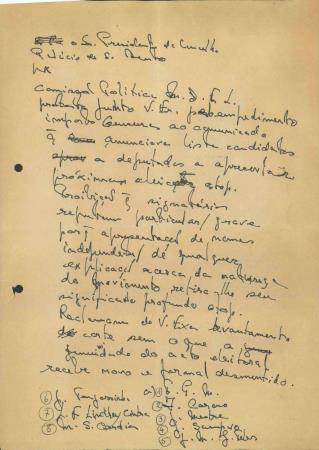 a S. Presidente do Conselho
Palácio de S. Bento
Lx
Comissão Política M. D. E. L.
protesta junto V. Exa. impedimento
imposto Censura ao comunicado
q anunciava lista candidatos
a deputados a apresentar
próximas eleições stop.
Proibição q signatários
reputam particular/ grave
porq apresentação de nomes
independen/ de qualquer
explicação acerca da natureza
do movimento retira-lhe seu
significado profundo stop.
Reclamamos de V. Exa levantamento
corte sem o que a
genuidade do acto eleitoral
recebe novo e formal desmentido.
6) J. a) 1) E. G. M.
7) J. F. 2) J.
8) M. S. 3) J.
4) J.
5) J. M. G.